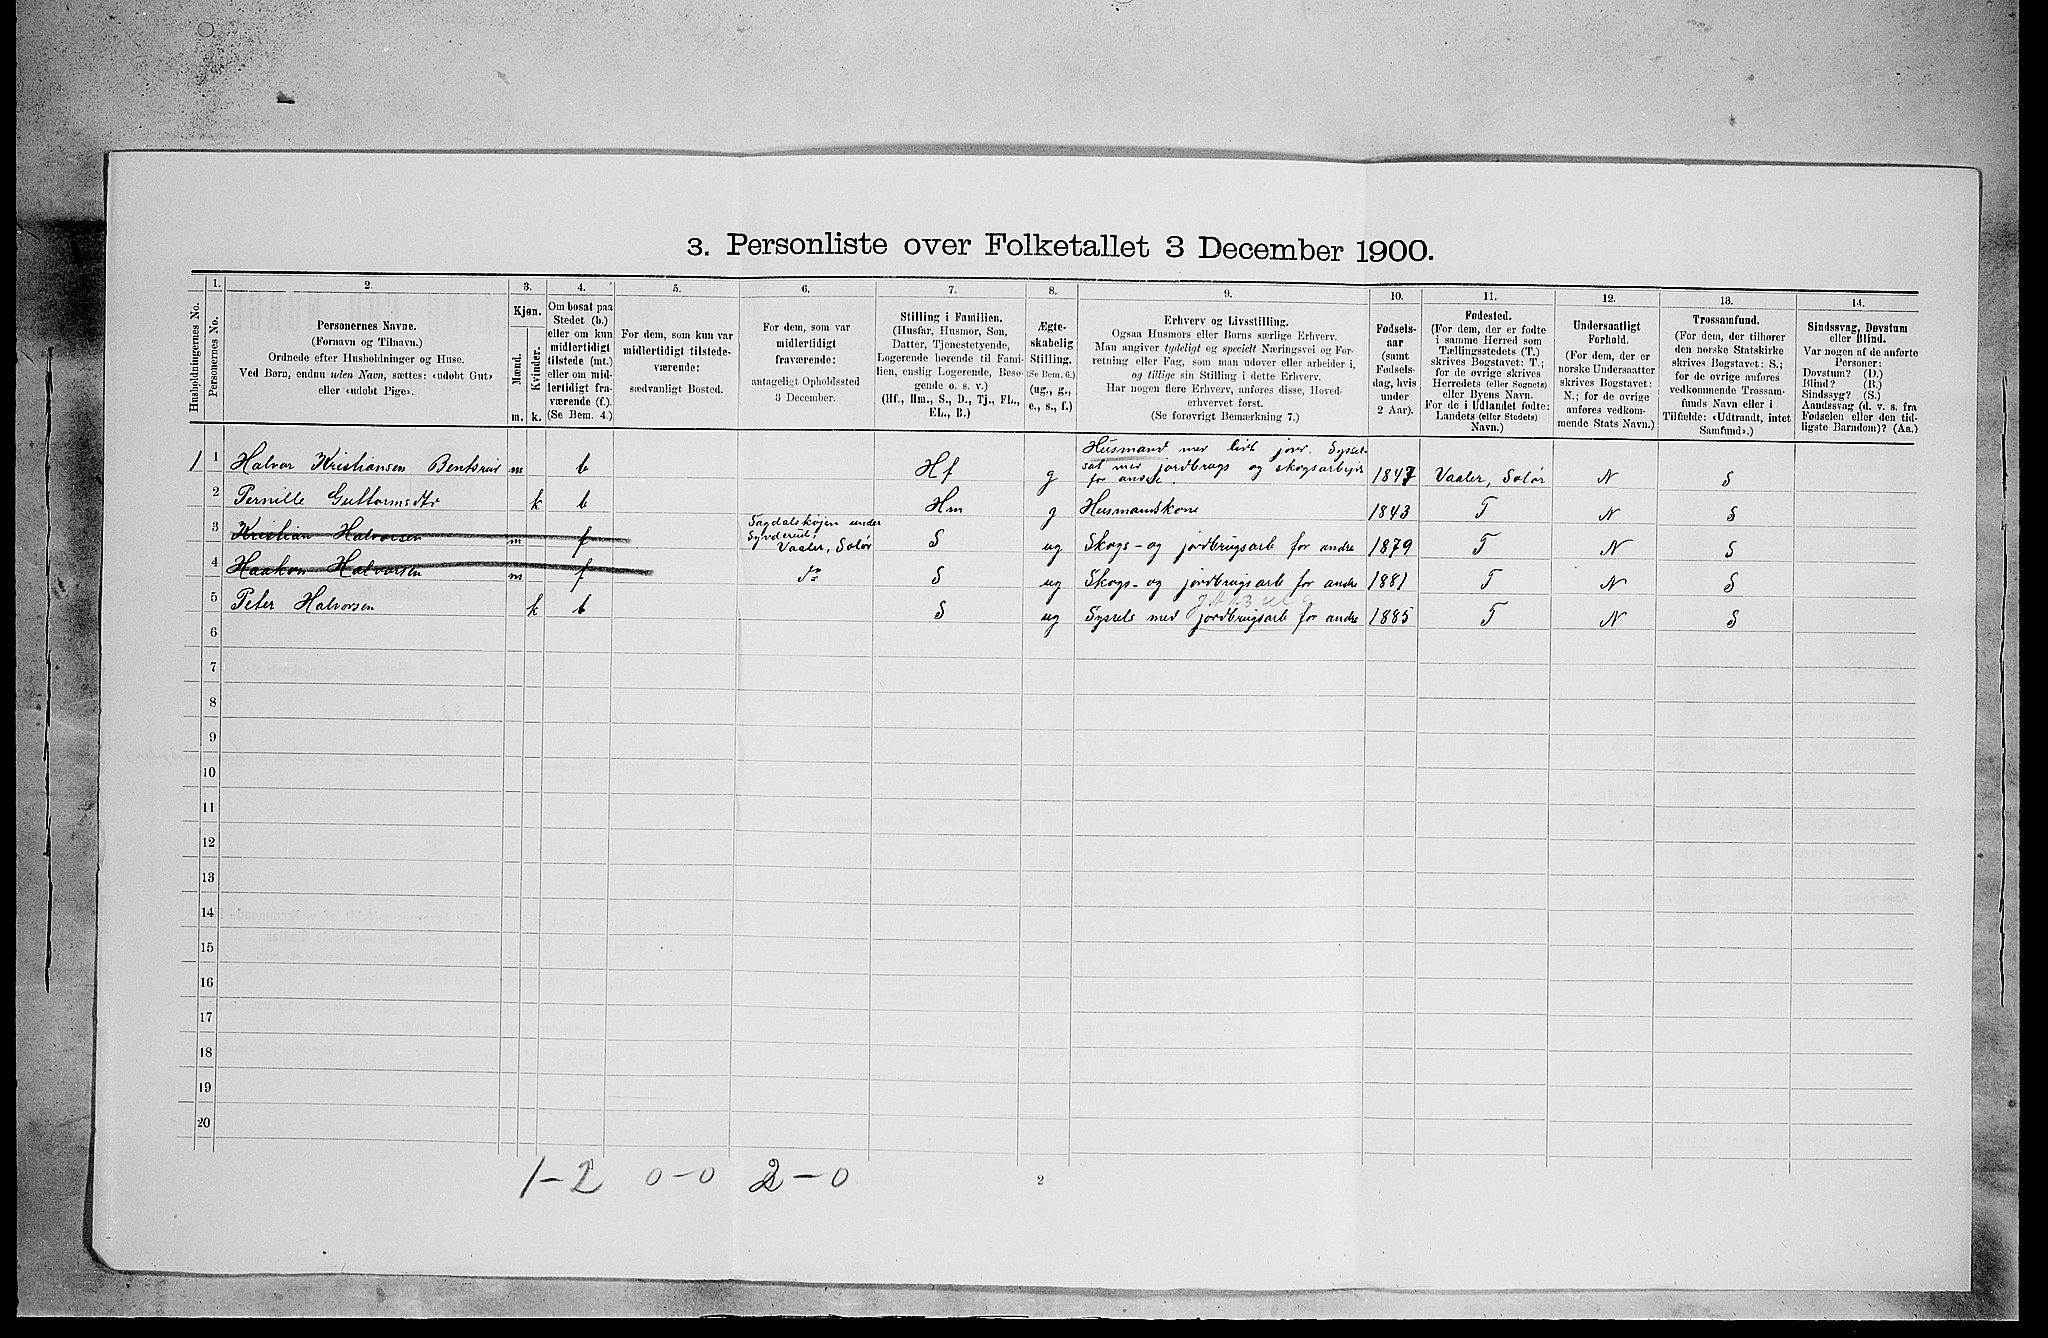 3. Personliste over Folketallet 3 December 1900.
Husholdningernes No.
1.
Personernes No.
2.
Personernes Navne.
(Fornavn og Tilnavn.)
Ordnede efter Husholdninger og Huse.
Ved Børn, endnu uden Navn, sættes: «udøbt Gut»
eller «udøbt Pige».
3.
Kjøn.
Mænd.
Kvinder.
m.
k.
4.
Om bosat paa
Stedet (b.)
eller om kun
midlertidigt
tilstede (mt.)
eller om mid-
lertidigt fra-
værende (f.)
(Se Bem. 4.)
5.
For dem, som kun var
midlertidigt tilstede-
værende:
sædvanligt Bosted.
6.
For dem, som var
midlertidigt
fraværende:
antageligt Opholdssted
3 December.
7.
Stilling i Familien.
(Husfar, Husmor, Søn,
Datter, Tjenestetyende,
Logerende hørende til Fami-
lien, enslig Logerende, Besø-
gende o. s. v.)
(Hf., Hm., S., D., Tj., FL.,
EL., B.)
8.
Ægte-
skabelig
Stilling.
(Se Bem. 6.)
(ug., g.,
e., s., f.)
9.
Erhverv og Livsstilling.
Ogsaa Husmors eller Børns særlige Erhverv.
Man angiver tydeligt og specielt Næringsvei og For-
retning eller Fag, som man udøver eller arbeider i,
og tillige sin Stilling i dette Erhverv.
Har nogen flere Erhverv, anføres disse, Hoved-
erhvervet først.
(Se forøvrigt Bemærkning 7.)
10.
Fødsels-
aar
(samt
Fødsels-
dag, hvis
under
2 Aar).
11.
Fødested.
(For dem, der er fødte
i samme Herred som
Tællingsstedets (T.)
skrives Bogstavet: T.;
for de øvrige skrives
Herredets (eller Sognets)
eller Byens Navn.
For de i Udlandet fødte:
Landets (eller Stedets)
Navn.)
12.
Undersaatligt
Forhold.
(For dem, der er
norske Undersaatter
skrives Bogstavet:
N.; for de øvrige
anføres vedkom-
mende Stats Navn.)
13.
Trossamfund.
(For dem, der tilhører
den norske Statskirke
skrives Bogstavet: S.;
for de øvrige anføres
vedkommende Trossam-
funds Navn eller i
Tilfælde: «Udtraadt, intet
Samfund».)
14.
Sindssvag, Døvstum
eller Blind.
Var nogen af de anførte
Personer:
Døvstum? (D.)
Blind? (B.)
Sindssyg? (S.)
Aandssvag (d. v. s. fra
Fødselen eller den tid-
ligste Barndom)? (Aa.)
1 1 Halvor Kristiansen m b Hf g Husmand med lidt jord. Syssel-
sat med jordbrugs og skogsarbeide
for andre. 1847 Vaaler, Solør N S
2 Pernille Guttormsdtr k b Hm g Husmandskone 1843 T N S
3 Kristian Halvorsen m f Sagdalskojen under
Vaaler, Solør S ug Skogs- og jordbrugsarb for andre 1879 T N S
4 Haakon Halvorsen m f do S ug Skogs- og jordbrugsarb for andre 1881 T N S
5 Peter Halvorsen k b S ug Syssels med jordbrugsarb for andre 1885 T N S
6
7
8
9
10
11
12
13
14
15
16
17
18
19
20
1-2 0-0 2-0
2